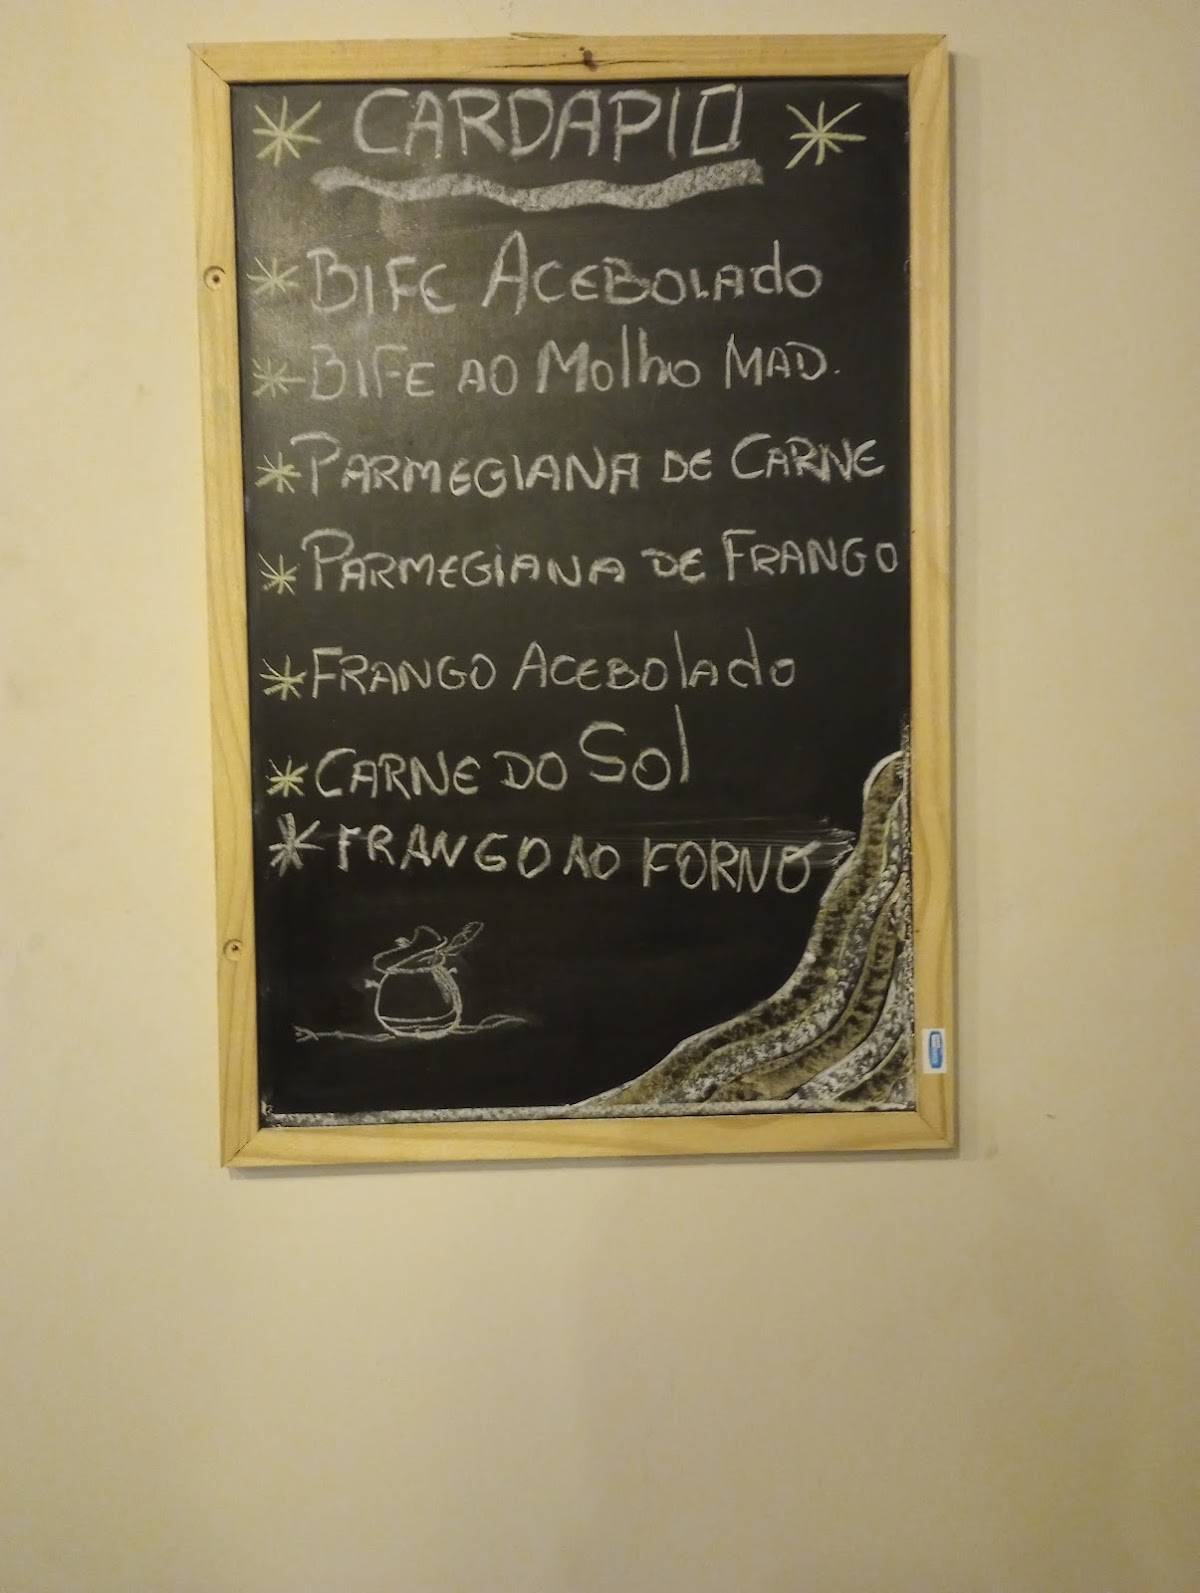 CARDAPIO
BIFE ACEBOLADO
BIFE AO MOLHO MAD.
PARMEGIANA DE CARNE
PARMEGIANA DE FRANGO
FRANGO ACEBOLADO
CARNE DO SOL
FRANGO AO FORNO